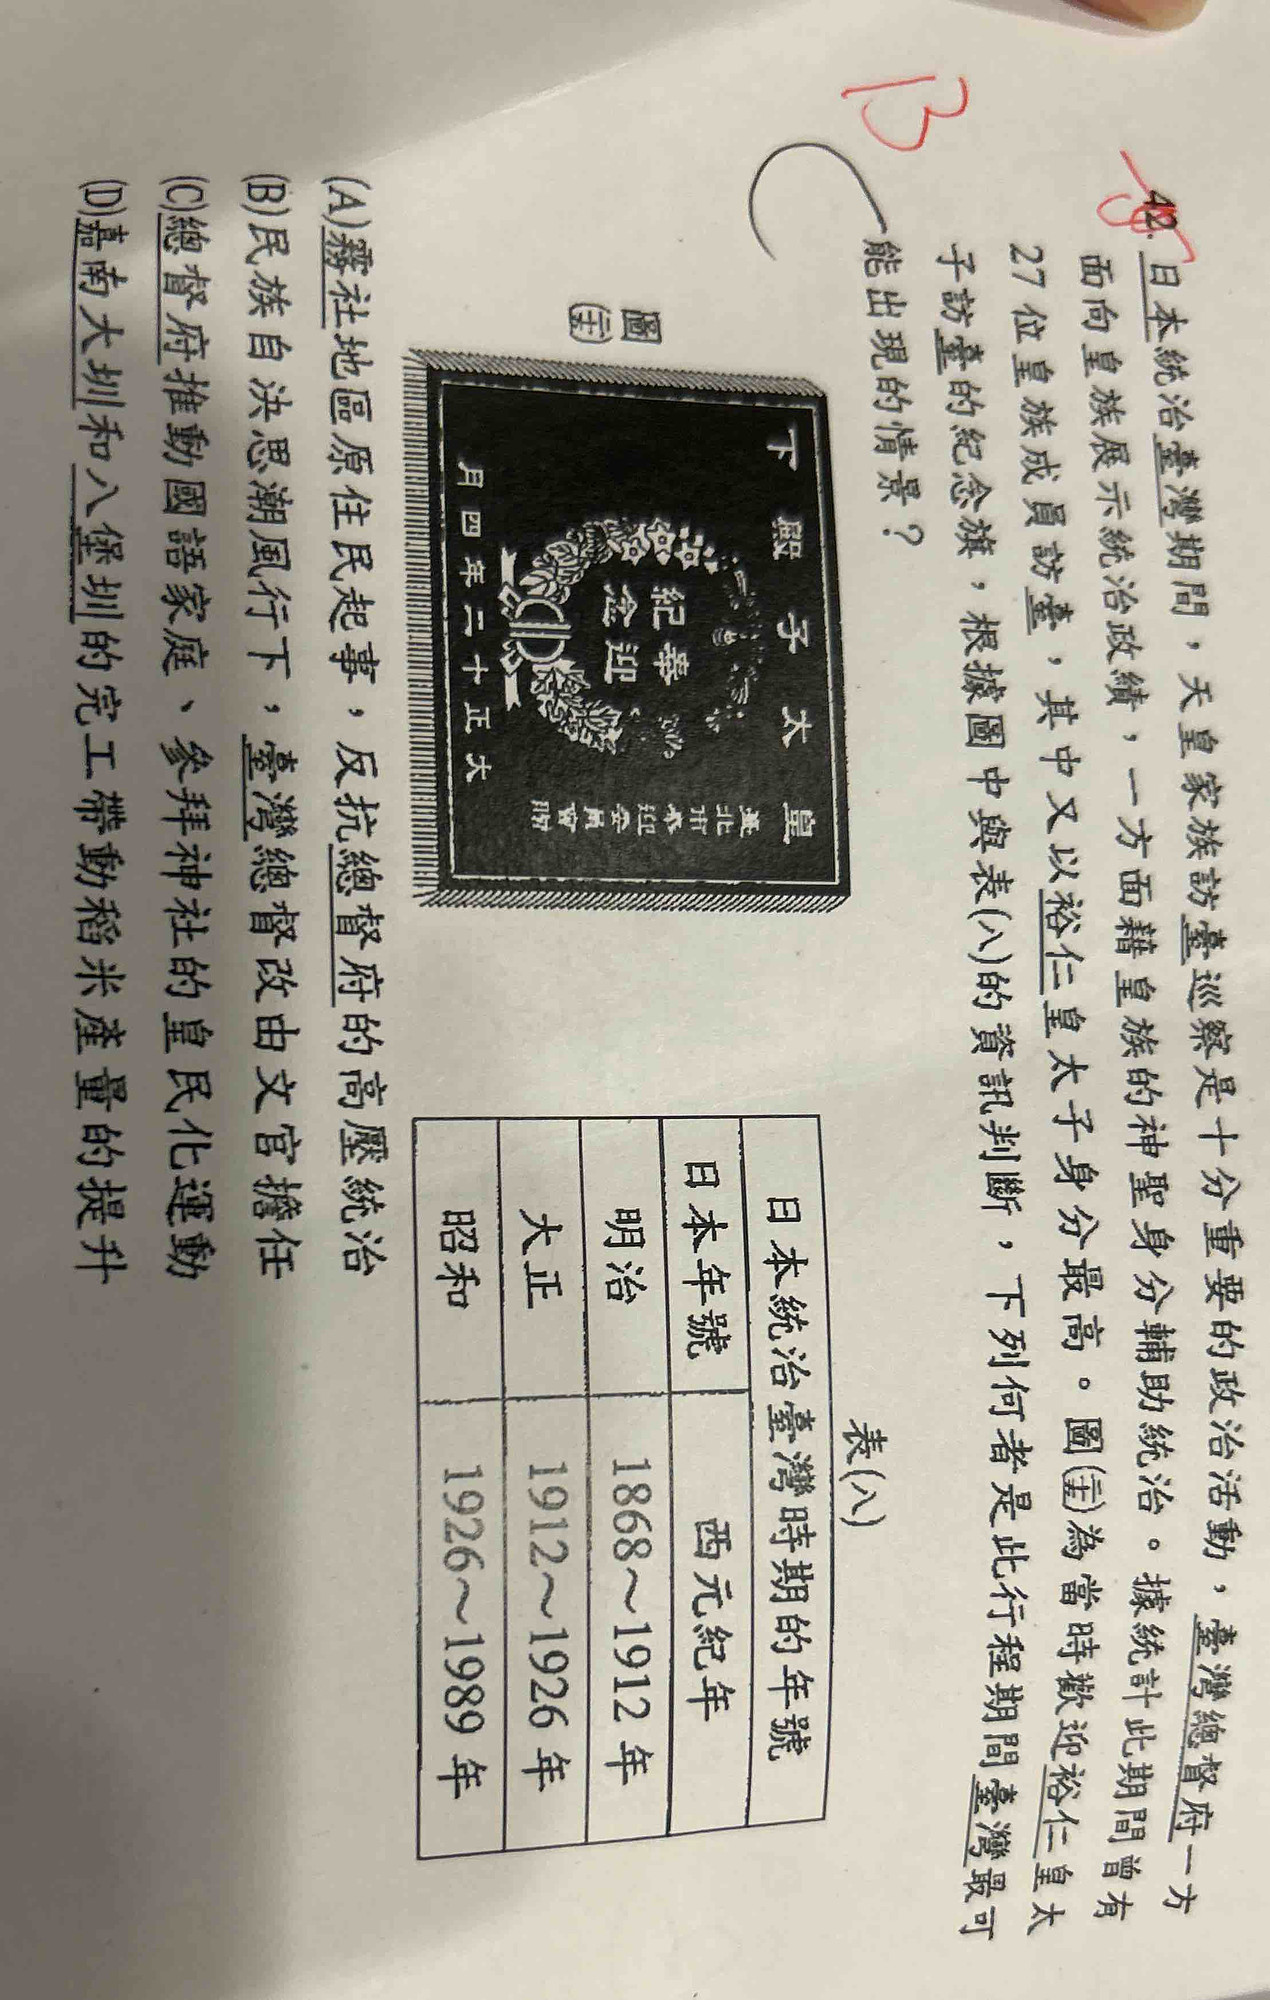 B
42. 日本統治臺灣期間，天皇家族訪臺巡察是十分重要的政治活動，臺灣總督府一方
面向皇族展示統治政績，一方面藉皇族的神聖身分輔助統治。據統計此期間曾有
27 位皇族成員訪臺，其中又以裕仁皇太子身分最高。圖(十五)為當時歡迎裕仁皇太
子訪臺的紀念旗，根據圖中與表(八)的資訊判斷，下列何者是此行程期間臺灣最可
能出現的情景？
下殿子太皇
奉迎
紀念
月四年二十正大
臺北市奉迎會
圖(十五)
表(八)
日本統治臺灣時期的年號
日本年號 西元紀年
明治 1868～1912 年
大正 1912～1926 年
昭和 1926～1989 年
(A)霧社地區原住民起事，反抗總督府的高壓統治
(B)民族自決思潮風行下，臺灣總督改由文官擔任
(C)總督府推動國語家庭、參拜神社的皇民化運動
(D)嘉南大圳和八堡圳的完工帶動稻米產量的提升